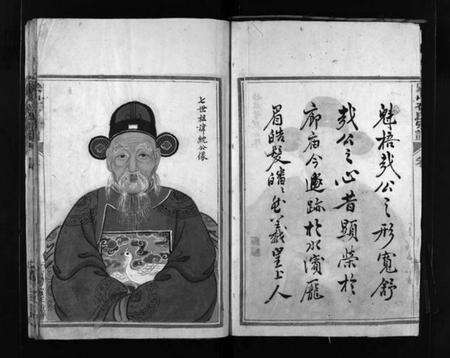 魁梧哉公之形寬舒
哉公之心昔顯榮於
廊廟今遯跡於水濱龐
眉皓髮皤皤然羲皇上人
七世祖諱純公像